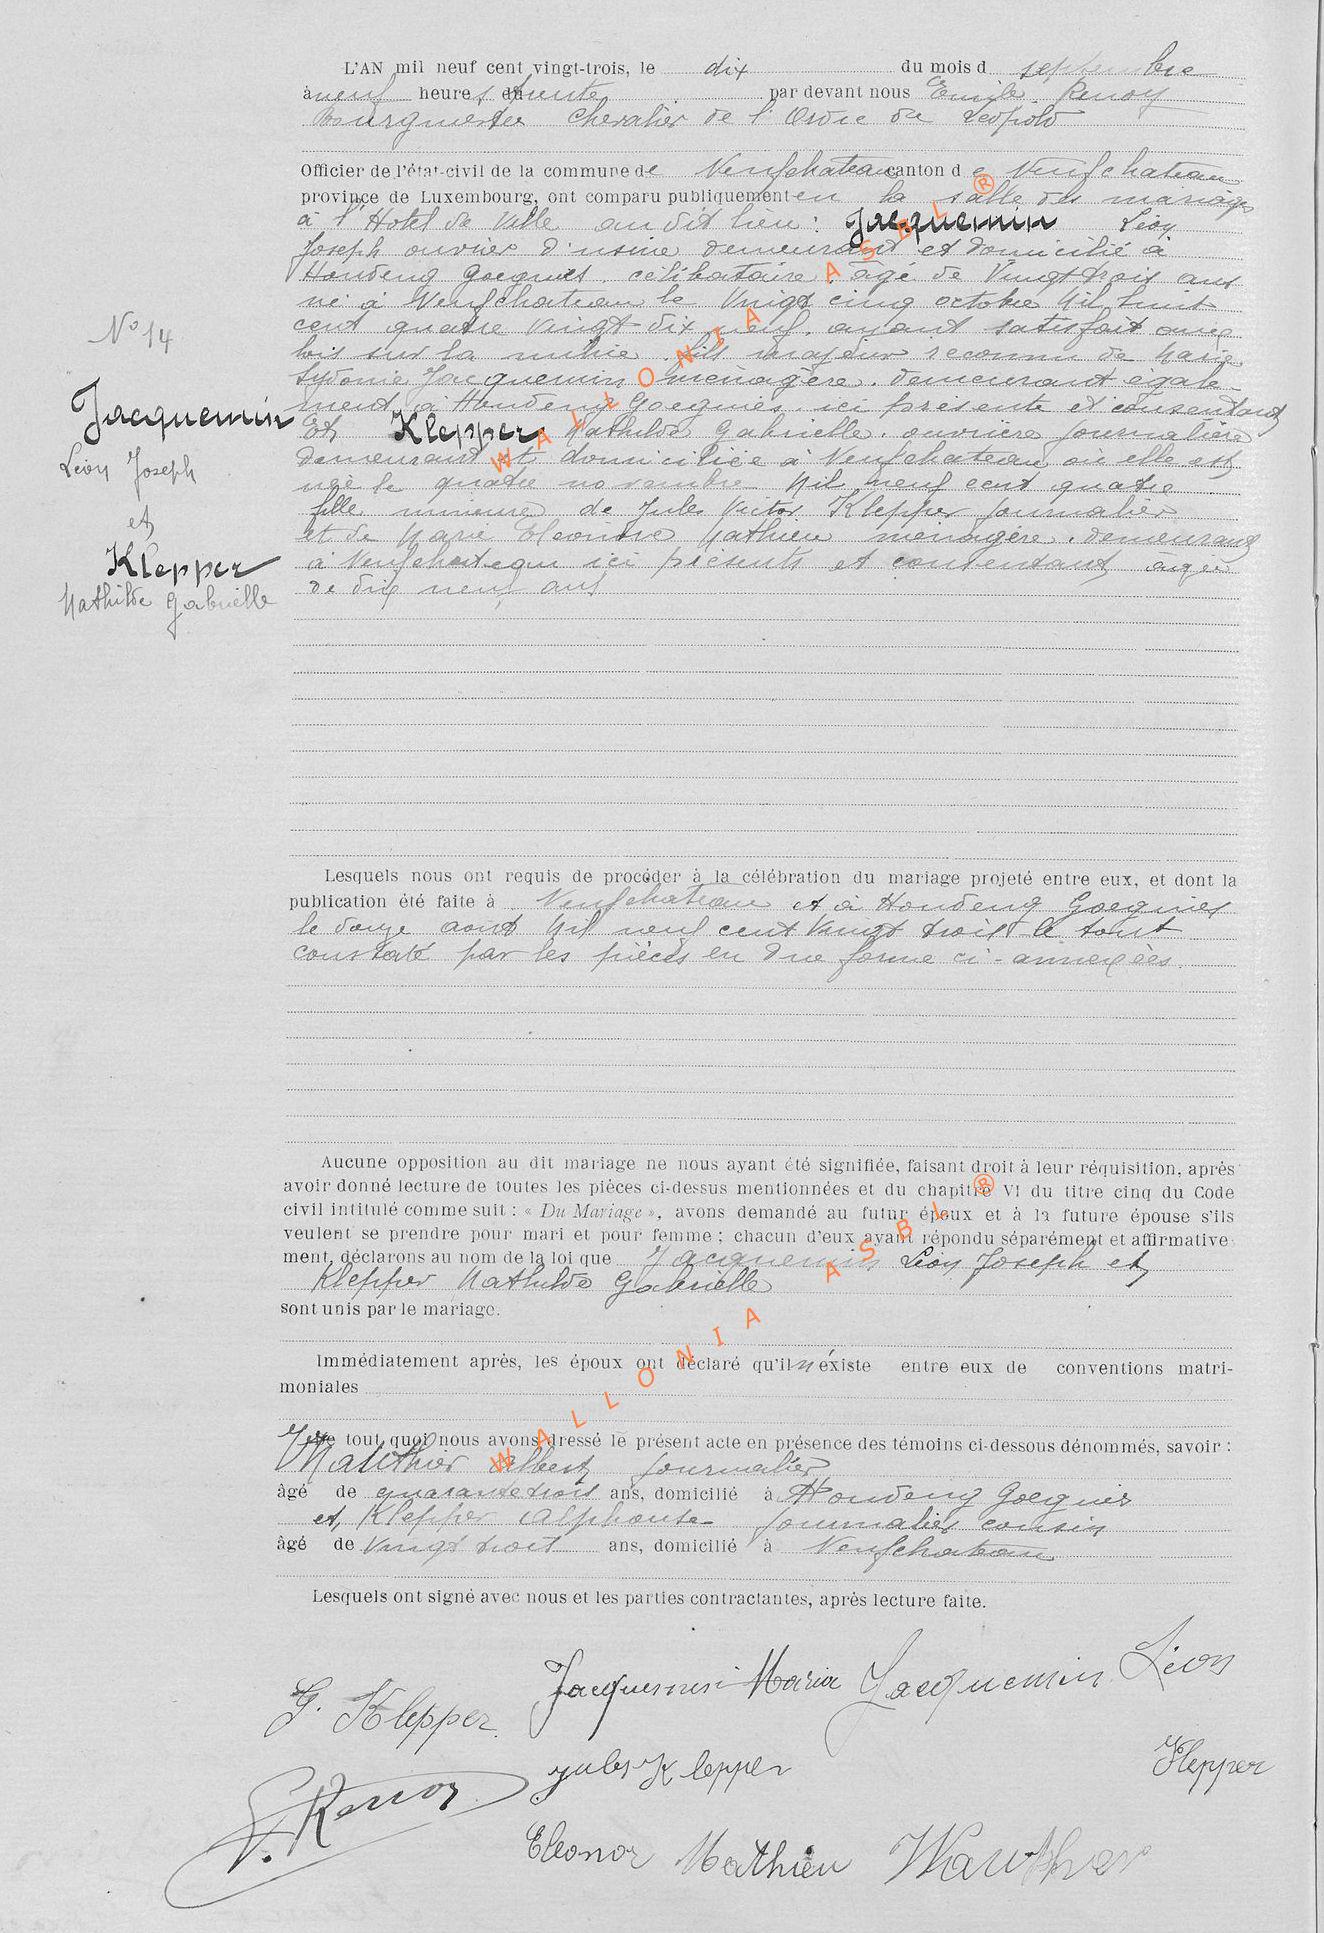 L'AN mil neuf cent vingt-trois, le dix du mois d septembre
à neuf heures du trente par devant nous Emile Renoy
Bourgmestre Chevalier de l'Ordre de Léopold
Officier de l'état-civil de la commune de Neufchateau canton de Neufchateau
province de Luxembourg, ont comparu publiquement en la salle des mariages
à l'Hotel de Ville au dit lieu : Jacquemin Léon
Joseph ouvrier d'usine demeurant et domicilié à
Houdeng Goegnies célibataire âgé de Vingt trois ans
né à Neufchateau le Vingt cinq octobre Mil huit
cent quatre Vingt dix neuf, ayant satisfait aux
lois sur la milice. fils majeur reconnu de Marie
Sydonie Jacquemin ménagère. demeurant égale-
ment à Houdeng Goegnies. ici présente et consentant
Et Klepper Mathilde Gabrielle. ouvrière journalière
demeurant et domiciliée à Neufchateau où elle est
née le quatre novembre Mil neuf cent quatre
fille mineure de Jules Victor Klepper journalier
et de Marie Eleonore Mathieu ménagère. demeurant
à Neufchateau ici présents et consentant âgée
de dix neuf ans
No 14
Jacquemin
Léon Joseph
et
Klepper
Mathilde Gabrielle
Lesquels nous ont requis de procéder à la célébration du mariage projeté entre eux, et dont la
publication été faite à Neufchateau et à Houdeng Goegnies
le douze aout Mil neuf cent Vingt trois le tout
constaté par les pièces en due forme ci-annexées.
Aucune opposition au dit mariage ne nous ayant été signifiée, faisant droit à leur réquisition, après
avoir donné lecture de toutes les pièces ci-dessus mentionnées et du chapitre VI du titre cinq du Code
civil intitulé comme suit : « Du Mariage », avons demandé au futur époux et à la future épouse s'ils
veulent se prendre pour mari et pour femme ; chacun d'eux ayant répondu séparément et affirmative
ment, déclarons au nom de la loi que Jacquemin Léon Joseph et
Klepper Mathilde Gabrielle
sont unis par le mariage.
Immédiatement après, les époux ont déclaré qu'il n'éxiste entre eux de conventions matri-
moniales
De tout quoi nous avons dressé le présent acte en présence des témoins ci-dessous dénommés, savoir :
Albert journalier
âgé de quarante trois ans, domicilié à Houdeng Goegnies
et, Klepper Alphonse journalier cousin
âgé de Vingt trois ans, domicilié à Neufchateau
Lesquels ont signé avec nous et les parties contractantes, après lecture faite.
G. Klepper Jacquemin Maria Jacquemin Léon
Jules Klepper Klepper
E. Renoy
Eleonor Mathieu
WALLONIA ASBL ®
WALLONIA ASBL ®